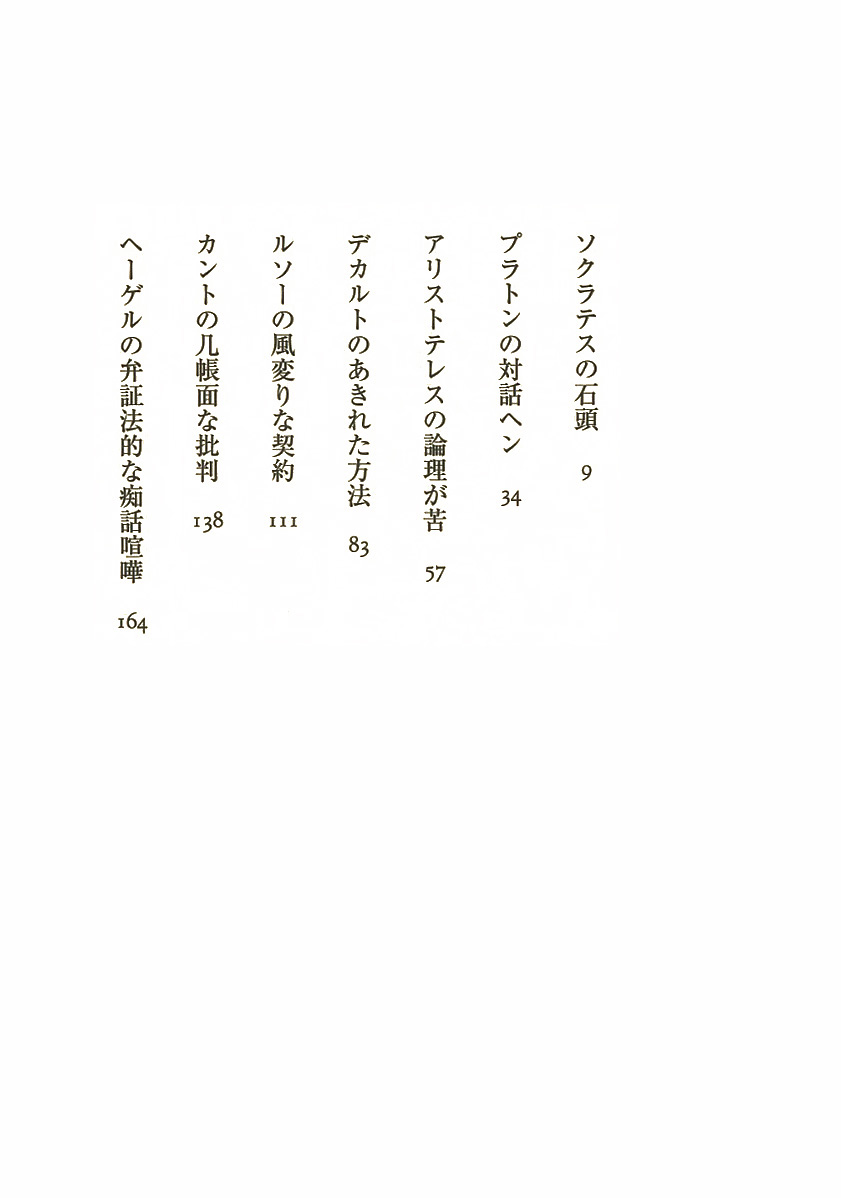 ソクラテスの石頭 9
プラトンの対話ヘン 34
アリストテレスの論理が苦 57
デカルトのあきれた方法 83
ルソーの風変りな契約 111
カントの几帳面な批判 138
ヘーゲルの弁証法的な痴話喧嘩 164